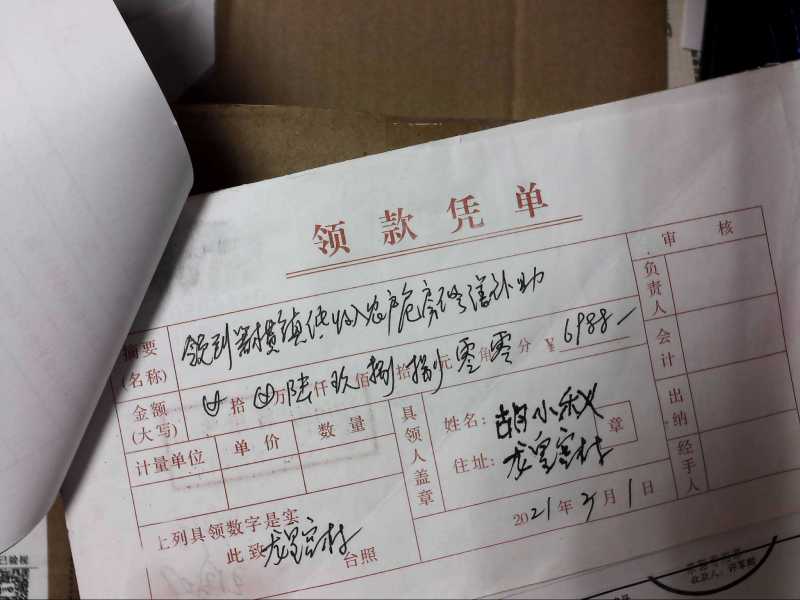 领款凭单
审核
摘要(名称) 领到 镇低收入农户危房修缮补助
负责人
金额(大写) 拾 万陆仟玖佰捌拾捌元零角零分 ¥6988—
会计
计量单位 单价 数量
具领人盖章
姓名:胡小秋 章
住址:龙皇宫村
出纳
经手人
2021年2月1日
上列具领数字是实
此致龙皇宫村台照
收款人: